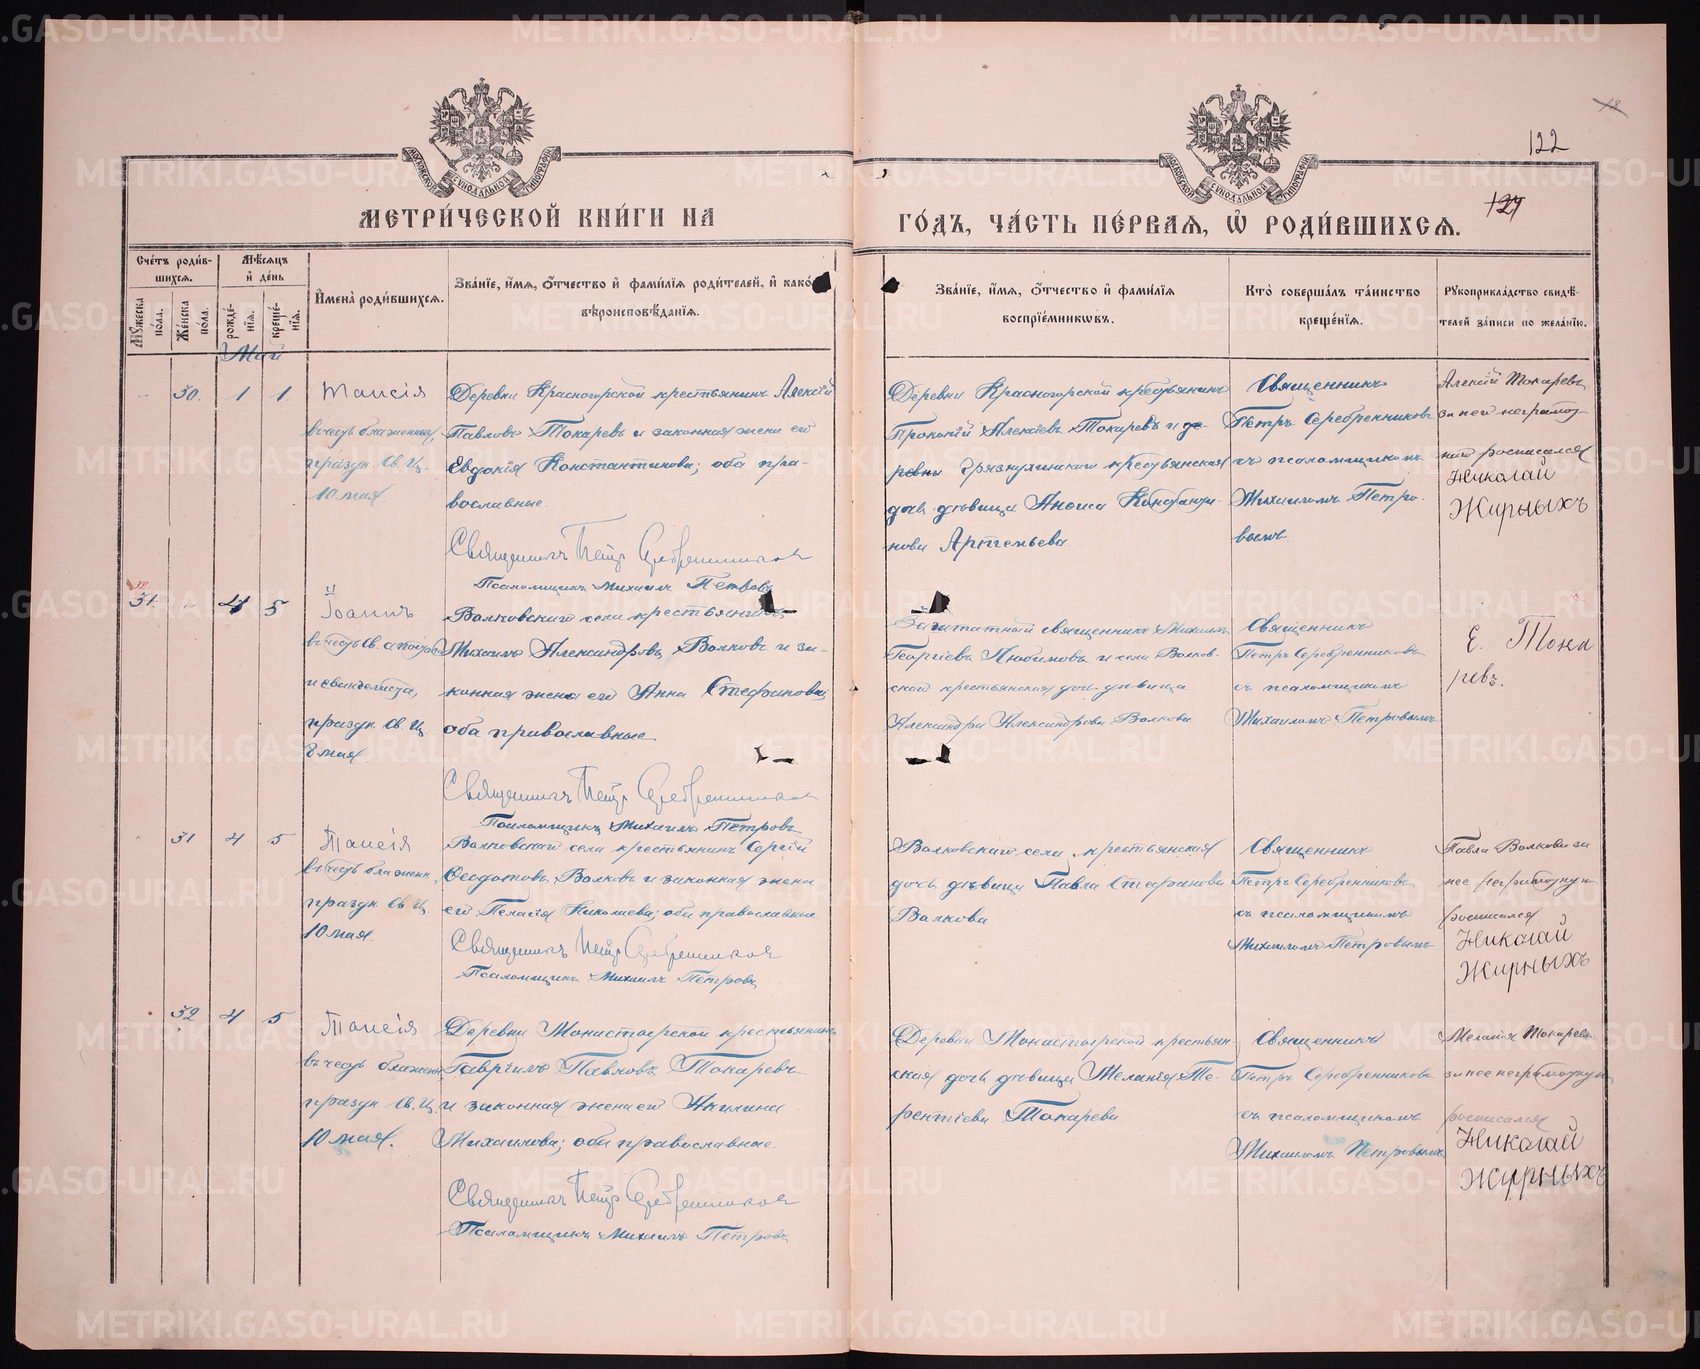 МОСКОВСКОЙ СѴНОДАЛЬНОЙ ТИПОГРАФІИ
МОСКОВСКОЙ СѴНОДАЛЬНОЙ ТИПОГРАФІИ
18
122
127
МЕТРИ́ЧЕСКОЙ КНИ́ГИ НА
ГО́ДЪ, ЧА́СТЬ ПЕ́РВАѦ, Ѡ҆ РОДИ́ВШИХСѦ.
Сче́тъ роди́в-
шихсѧ.
Мꙋжеска по́ла.
Же́нска по́ла.
Мѣ́сѧцъ
и҆ де́нь
рожде́-
нїѧ.
креще́-
нїѧ.
И҆мена̀ роди́вшихсѧ.
Зва́нїе, и҆́мѧ, ѻ҆́тчество и҆ фами́лїѧ роди́телей, и҆ како́
вѣроисповѣ́данїѧ.
Зва́нїе, и҆́мѧ, ѻ҆́тчество и҆ фами́лїѧ
воспрїе́мникѡвъ.
Кто̀ соверша́лъ та́инство
креще́нїѧ.
Рꙋкоприкла́дство свидѣ́-
телей за́писи по жела́нїю.
Май
30. 1 1
Таисія
въ честь блаженныя,
праздн. Св. Ц.
10 мая.
Деревни Красногорской крестьянинъ Алексій
Павловъ Токаревъ и законная жена его
Евдокія Константинова; оба пра-
вославные.
Священникъ Петръ Серебренников
Псаломщикъ Михаилъ Петровъ
Деревни Красногорской крестьянинъ
Прокопій Алексіевъ Токаревъ и де-
ревни Грязнухинской крестьянская
дочь девица Аноиса Константи-
нова Артемьева.
Священникъ
Петръ Серебренниковъ
съ псаломщикомъ
Михаиломъ Петро-
вымъ.
Алексій Токаревъ
за него неграмот-
наго росписался
Николай
Жирныхъ
31. 4 5
Іоаннъ
въ честь Св. апостола
и евангелиста,
праздн. Св. Ц.
8 мая
Волковскаго села крестьянинъ
Михаилъ Александровъ Волковъ и за-
конная жена его Анна Стефанова,
оба православные.
Священникъ Петръ Серебренников
Псаломщикъ Михаилъ Петровъ
Заштатный священникъ Михаилъ
Георгіевъ Любимовъ и села Волков-
скаго крестьянская дочь девица
Александра Александрова Волкова
Священникъ
Петръ Серебренниковъ
съ псаломщикомъ
Михаиломъ Петровымъ
Е. Тока
ревъ.
31 4 5
Таисія
въ честь блаженн.
праздн. Св. Ц.
10 мая.
Волковскаго села крестьянинъ Сергій
Ѳеодотовъ Волковъ и законная жена
его Пелагія Николаева; оба православные
Священникъ Петръ Серебренников
Псаломщикъ Михаилъ Петровъ
Волковскаго села крестьянская
дочь девица Павла Стефанова
Волкова
Священникъ
Петръ Серебренниковъ
съ псаломщикомъ
Михаиломъ Петровымъ
Павла Волкова за
нее неграмотную
росписался
Николай
Жирныхъ
32 4 5
Таисія
въ честь блаженн
праздн. Св. Ц.
10 мая.
Деревни Монастырской крестьянинъ
Гавріилъ Павловъ Токаревъ
и законная жена его Акилина
Михаилова; оба православные
Священникъ Петръ Серебренников
Псаломщикъ Михаилъ Петровъ
Деревни Монастырской крестьян-
ская дочь девица Меланія Те-
рентіева Токарева
Священникъ
Петръ Серебренниковъ
съ псаломщикомъ
Михаиломъ Петровымъ
Меланія Токарева
за нее неграмотную
росписался
Николай
Жирныхъ
METRIKI.GASO-URAL.RU